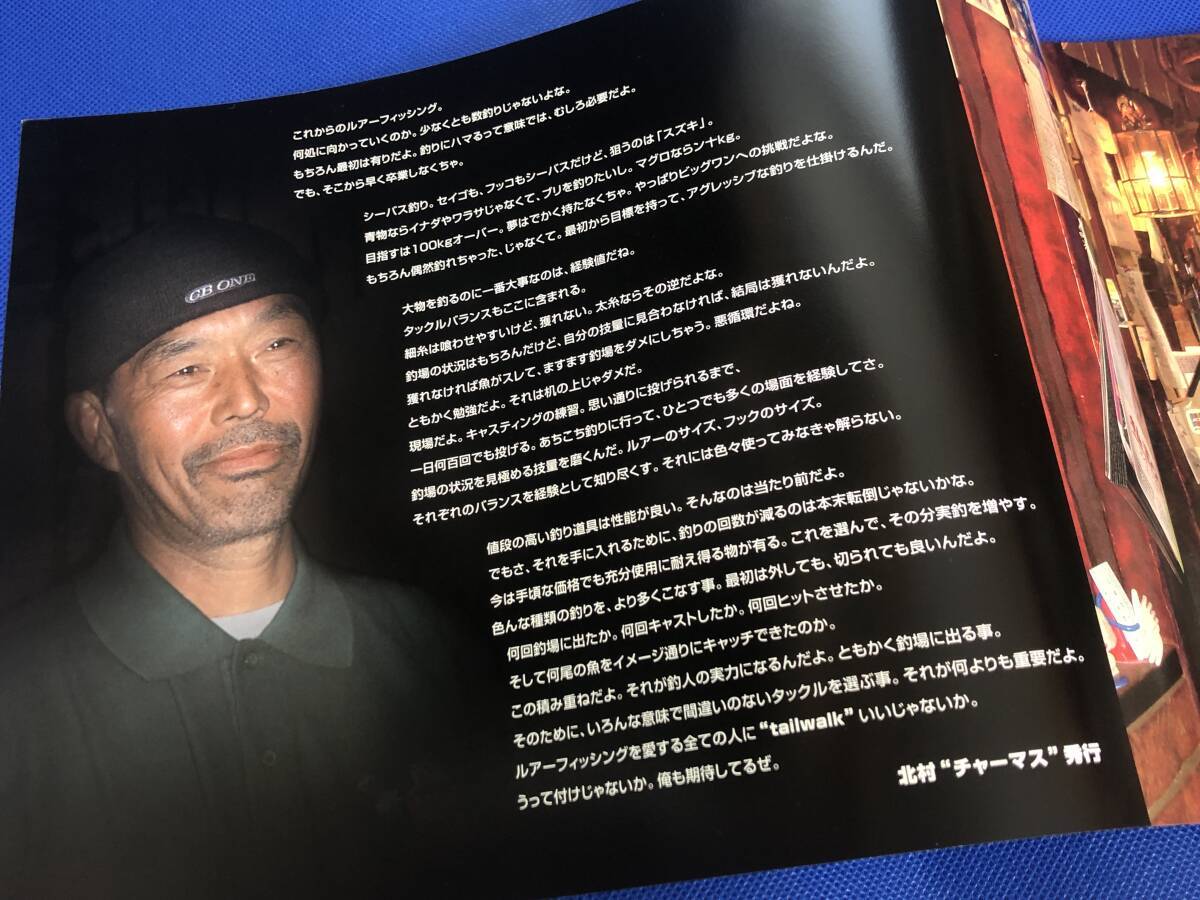 CB ONE
これからのルアーフィッシング。
何処に向かっていくのか。少なくとも数釣りじゃないよな。
もちろん最初は有りだよ。釣りにハマるって意味では、むしろ必要だよ。
でも、そこから早く卒業しなくちゃ。
シーバス釣り。セイゴも、フッコもシーバスだけど、狙うのは「スズキ」。
青物ならイナダやワラサじゃなくて、ブリを釣りたいし。マグロならン十kg。
目指すは100kgオーバー。夢はでかく持たなくちゃ。やっぱりビッグワンへの挑戦だよな。
もちろん偶然釣れちゃった、じゃなくて。最初から目標を持って、アグレッシブな釣りを仕掛けるんだ。
大物を釣るのに一番大事なのは、経験値だね。
タックルバランスもここに含まれる。
細糸は喰わせやすいけど、獲れない。太糸ならその逆だよな。
釣場の状況はもちろんだけど、自分の技量に見合わなければ、結局は獲れないんだよ。
獲れなければ魚がスレて、ますます釣場をダメにしちゃう。悪循環だよね。
ともかく勉強だよ。それは机の上じゃダメだ。
現場だよ。キャスティングの練習。思い通りに投げられるまで、
一日何百回でも投げる。あちこち釣りに行って、ひとつでも多くの場面を経験してさ。
釣場の状況を見極める技量を磨くんだ。ルアーのサイズ、フックのサイズ。
それぞれのバランスを経験として知り尽くす。それには色々使ってみなきゃ解らない。
値段の高い釣り道具は性能が良い。そんなのは当たり前だよ。
でもさ、それを手に入れるために、釣りの回数が減るのは本末転倒じゃないかな。
今は手頃な価格でも充分使用に耐え得る物が有る。これを選んで、その分実釣を増やす。
色んな種類の釣りを、より多くこなす事。最初は外しても、切られても良いんだよ。
何回釣場に出たか。何回キャストしたか。何回ヒットさせたか。
そして何尾の魚をイメージ通りにキャッチできたのか。
この積み重ねだよ。それが釣人の実力になるんだよ。ともかく釣場に出る事。
そのために、いろんな意味で間違いのないタックルを選ぶ事。それが何よりも重要だよ。
ルアーフィッシングを愛する全ての人に“tailwalk”いいじゃないか。
うって付けじゃないか。俺も期待してるぜ。
北村“チャーマス”秀行